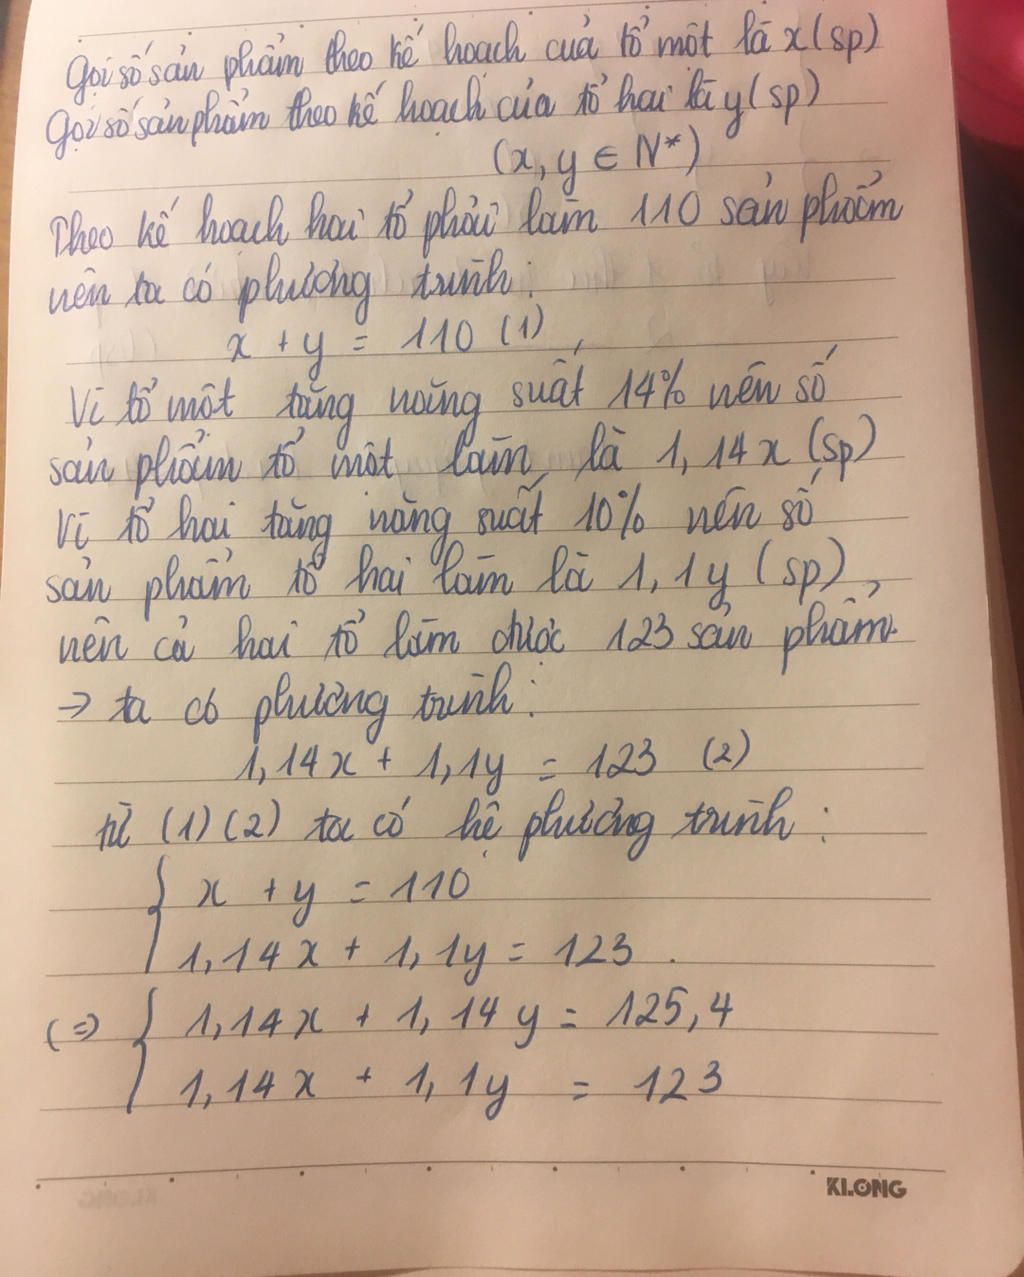 Gọi số sản phẩm theo kế hoạch của tổ một là x (sp)
Gọi số sản phẩm theo kế hoạch của tổ hai là y (sp)
(x, y ∈ N*)
Theo kế hoạch hai tổ phải làm 110 sản phẩm
nên ta có phương trình:
x + y = 110 (1)
Vì tổ một tăng năng suất 14% nên số
sản phẩm tổ một làm là 1,14x (sp)
Vì tổ hai tăng năng suất 10% nên số
sản phẩm tổ hai làm là 1,1y (sp)
nên cả hai tổ làm được 123 sản phẩm.
→ ta có phương trình:
1,14x + 1,1y = 123 (2)
từ (1) (2) ta có hệ phương trình:
x + y = 110
1,14x + 1,1y = 123.
(=) 1,14x + 1,14y = 125,4
1,14x + 1,1y = 123
KLONG